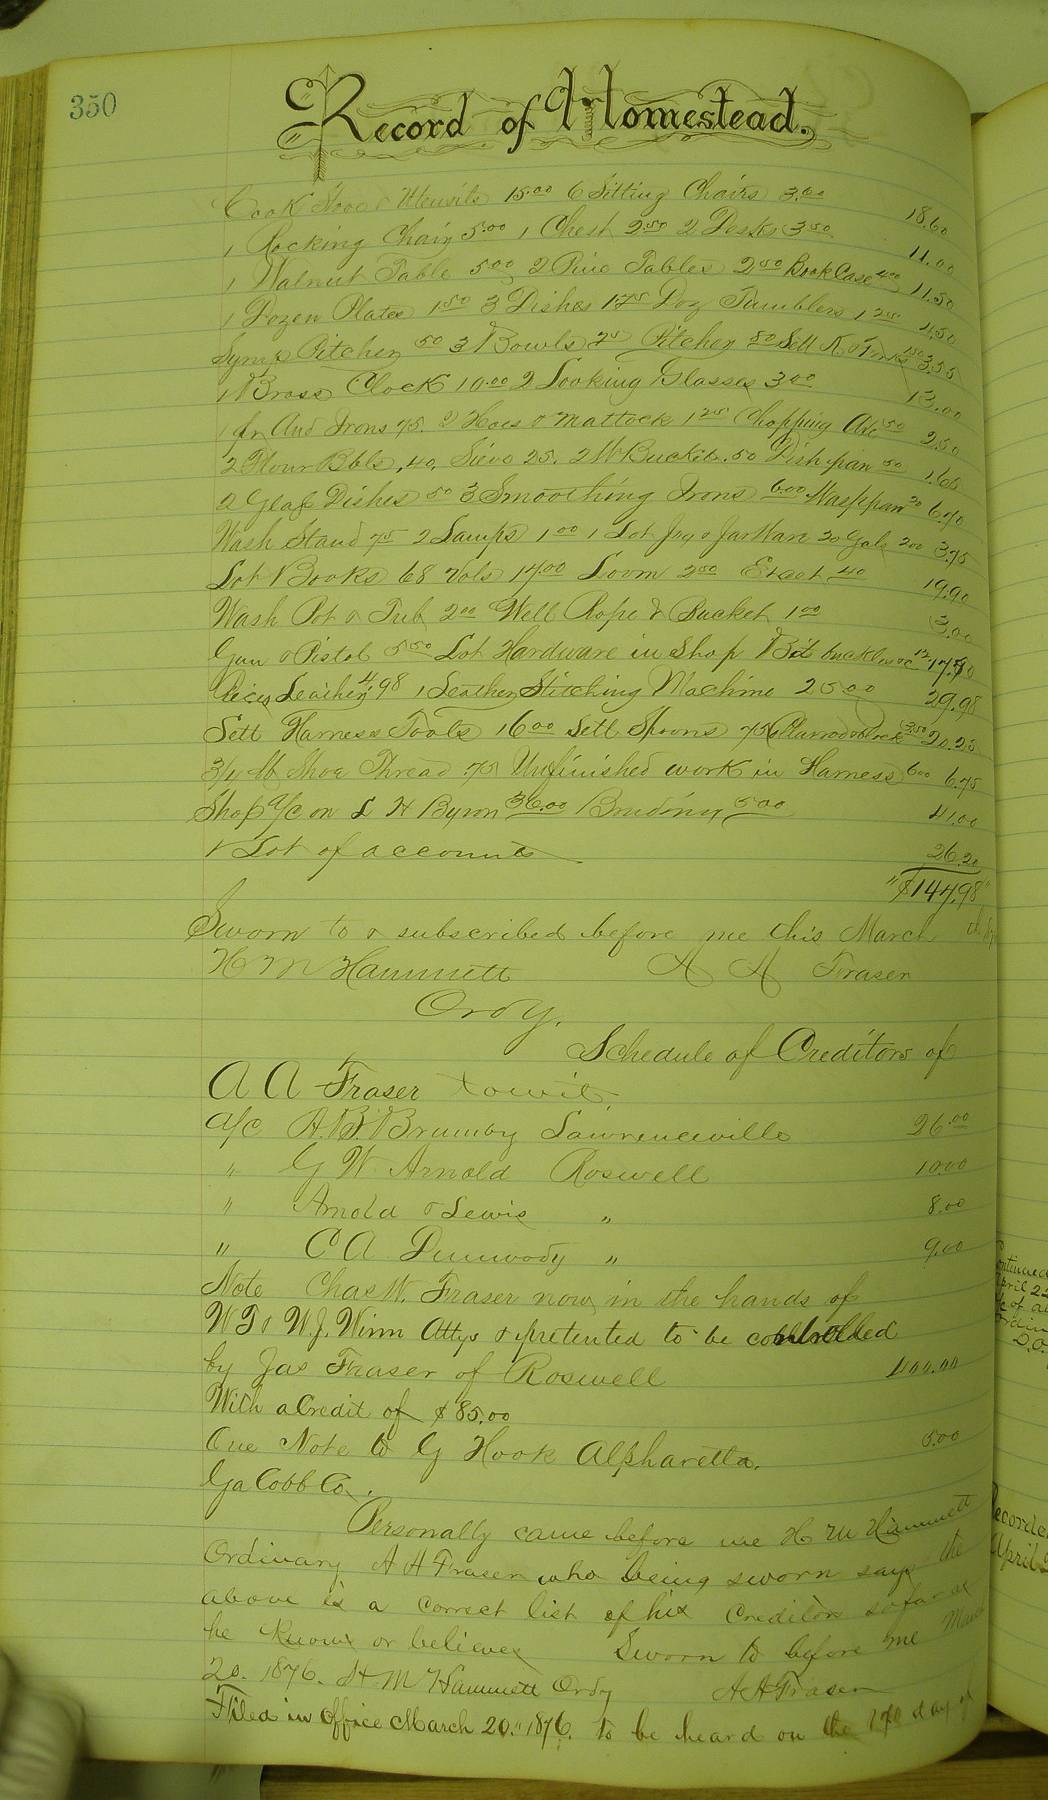 350
Record of Homestead.
Cook Stove & Utensils 15.00 6 Sitting Chairs 3.60 18.60
1 Rocking Chair 5.00 1 Chest 2.50 2 Desks 3.50 11.00
1 Walnut Table 5.00 2 Pine Tables 2.50 Book Case 4.00 11.50
1 Dozen Plates 1.50 3 Dishes 1.75 Doz Tumblers 1.25 4.50
Syrup Pitcher 50 3 Bowls 75 Pitcher 80 Sett K & Forks 1.50 3.55
1 Brass Clock 10.00 2 Looking Glasses 3.00 13.00
1 pr And Irons 75. 2 Hoes & Mattock 1.25 Chopping Axe 50 2.50
2 Flour Bbls .40. Sieve 25. 2 W Buckets .50 Dish pan 50 1.65
2 Glass Dishes 50 3 Smoothing Irons 6.00 Wash pan 20 6.70
Wash Stand 75 2 Lamps 1.00 1 Lot Jug & Jar Ware 20 Gals 2.00 3.75
Lot Books 68 Vols 17.00 Loom 2.50 40 19.90
Wash Pot & Tub 2.00 Well Rope & Bucket 1.00 3.00
Gun & Pistol 5.50 Lot Hardware in Shop Bits buckles &c 12 17.50
Leather 4.98 1 Leather Stitching Machine 25.00 29.98
Sett Harness Tools 16.00 Sett Spoons 75 3.50 20.25
3/4 lb Shoe Thread .75 Unfinished work in Harness 6.00 6.75
Shop a/c on L H Byron 36.00 5.00 41.00
1 Lot of accounts 26.20
"$147.98"
Sworn to & subscribed before me this March
H M Hammett A A Fraser
Ordy.
Schedule of Creditors of
A A Fraser towit
a/c A. B. Brumby Lawrenceville 26.00
" G W Arnold Roswell 10.00
" Arnold & Lewis " 8.00
" C A Dunwody " 9.00
Note Chas W. Fraser now in the hands of
W T & W. J. Winn Attys & pretented to be controlled
by Jas Fraser of Roswell 400.00
With a Credit of $85.00
One Note to G Hook Alpharetta. 5.00
Ga Cobb Co.
Personally came before me H M Hammett
Ordinary A A Fraser who being sworn says the
above is a correct list of his Creditors so far as
he knows or believes Sworn to before me March
20. 1876. H M Hammett Ordy A A Fraser
Filed in Office March 20." 1876. to be heard on the day of
April 22
D.O.
Recorded
April